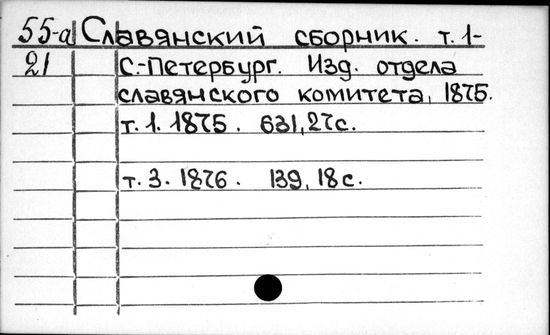 55-а Славянский сборник. т. 1-
21 С.-Петербург. Изд. отдела
славянского комитета, 1875.
т. 1. 1875. 631, 27с.
т. 3. 1876. 139, 18 с.